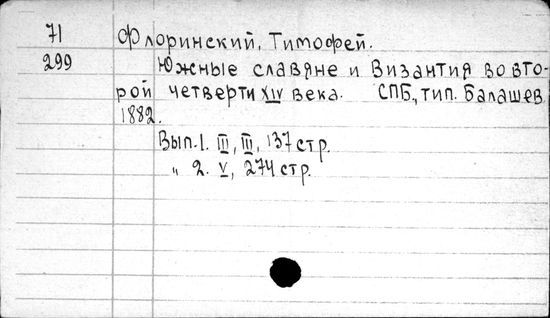 71 Флоринский, Тимофей.
299 Южные славяне и Византия во вто-
рой четверти XIV века. СПБ., тип. Балашев.
1882.
Вып. 1. III, III, 137 стр.
" 2. V, 274 стр.